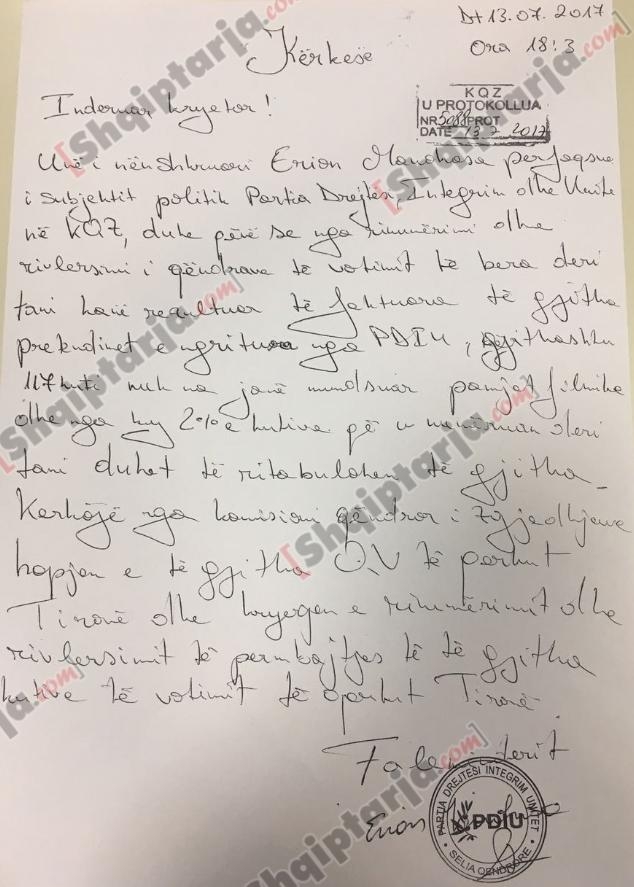 Dt 13.07.2017
Ora 18:3
Kërkesë
KQZ
U PROTOKOLLUA
NR 5088 PROT
DATË 13.7.2017
Inderuar kryetar!
Unë i nënshkruari Erion Manohasa perfaqsue
i subjektit politik Partia Drejtes, Integrim dhe Unite
në KQZ, duke që se nga rinumërimi dhe
rivlersimi i qëndrave të votimit të bera deri
tani kanë rezultuar të faktuara të gjitha
pretendimet e ngritura nga PDIU, gjithashtu
117 kuti nuk na janë mundsuar pamjet filmike
dhe nga ky 2% e kutive që u numëruan deri
tani duhet të ritabulohen të gjitha
Kerkojë nga komisioni qëndror i zgjedhjeve
hapjen e të gjitha Q.V të parkut
Tiranë dhe kryerjen e rinumërimit dhe
rivlersimit të permbajtjes të të gjitha
kutive të votimit të qarkut Tiranë
Faleminderit
Erion
PARTIA DREJTESI INTEGRIM UNITET
PDIU
SELIA QENDRORE
[Shqiptarja.com]